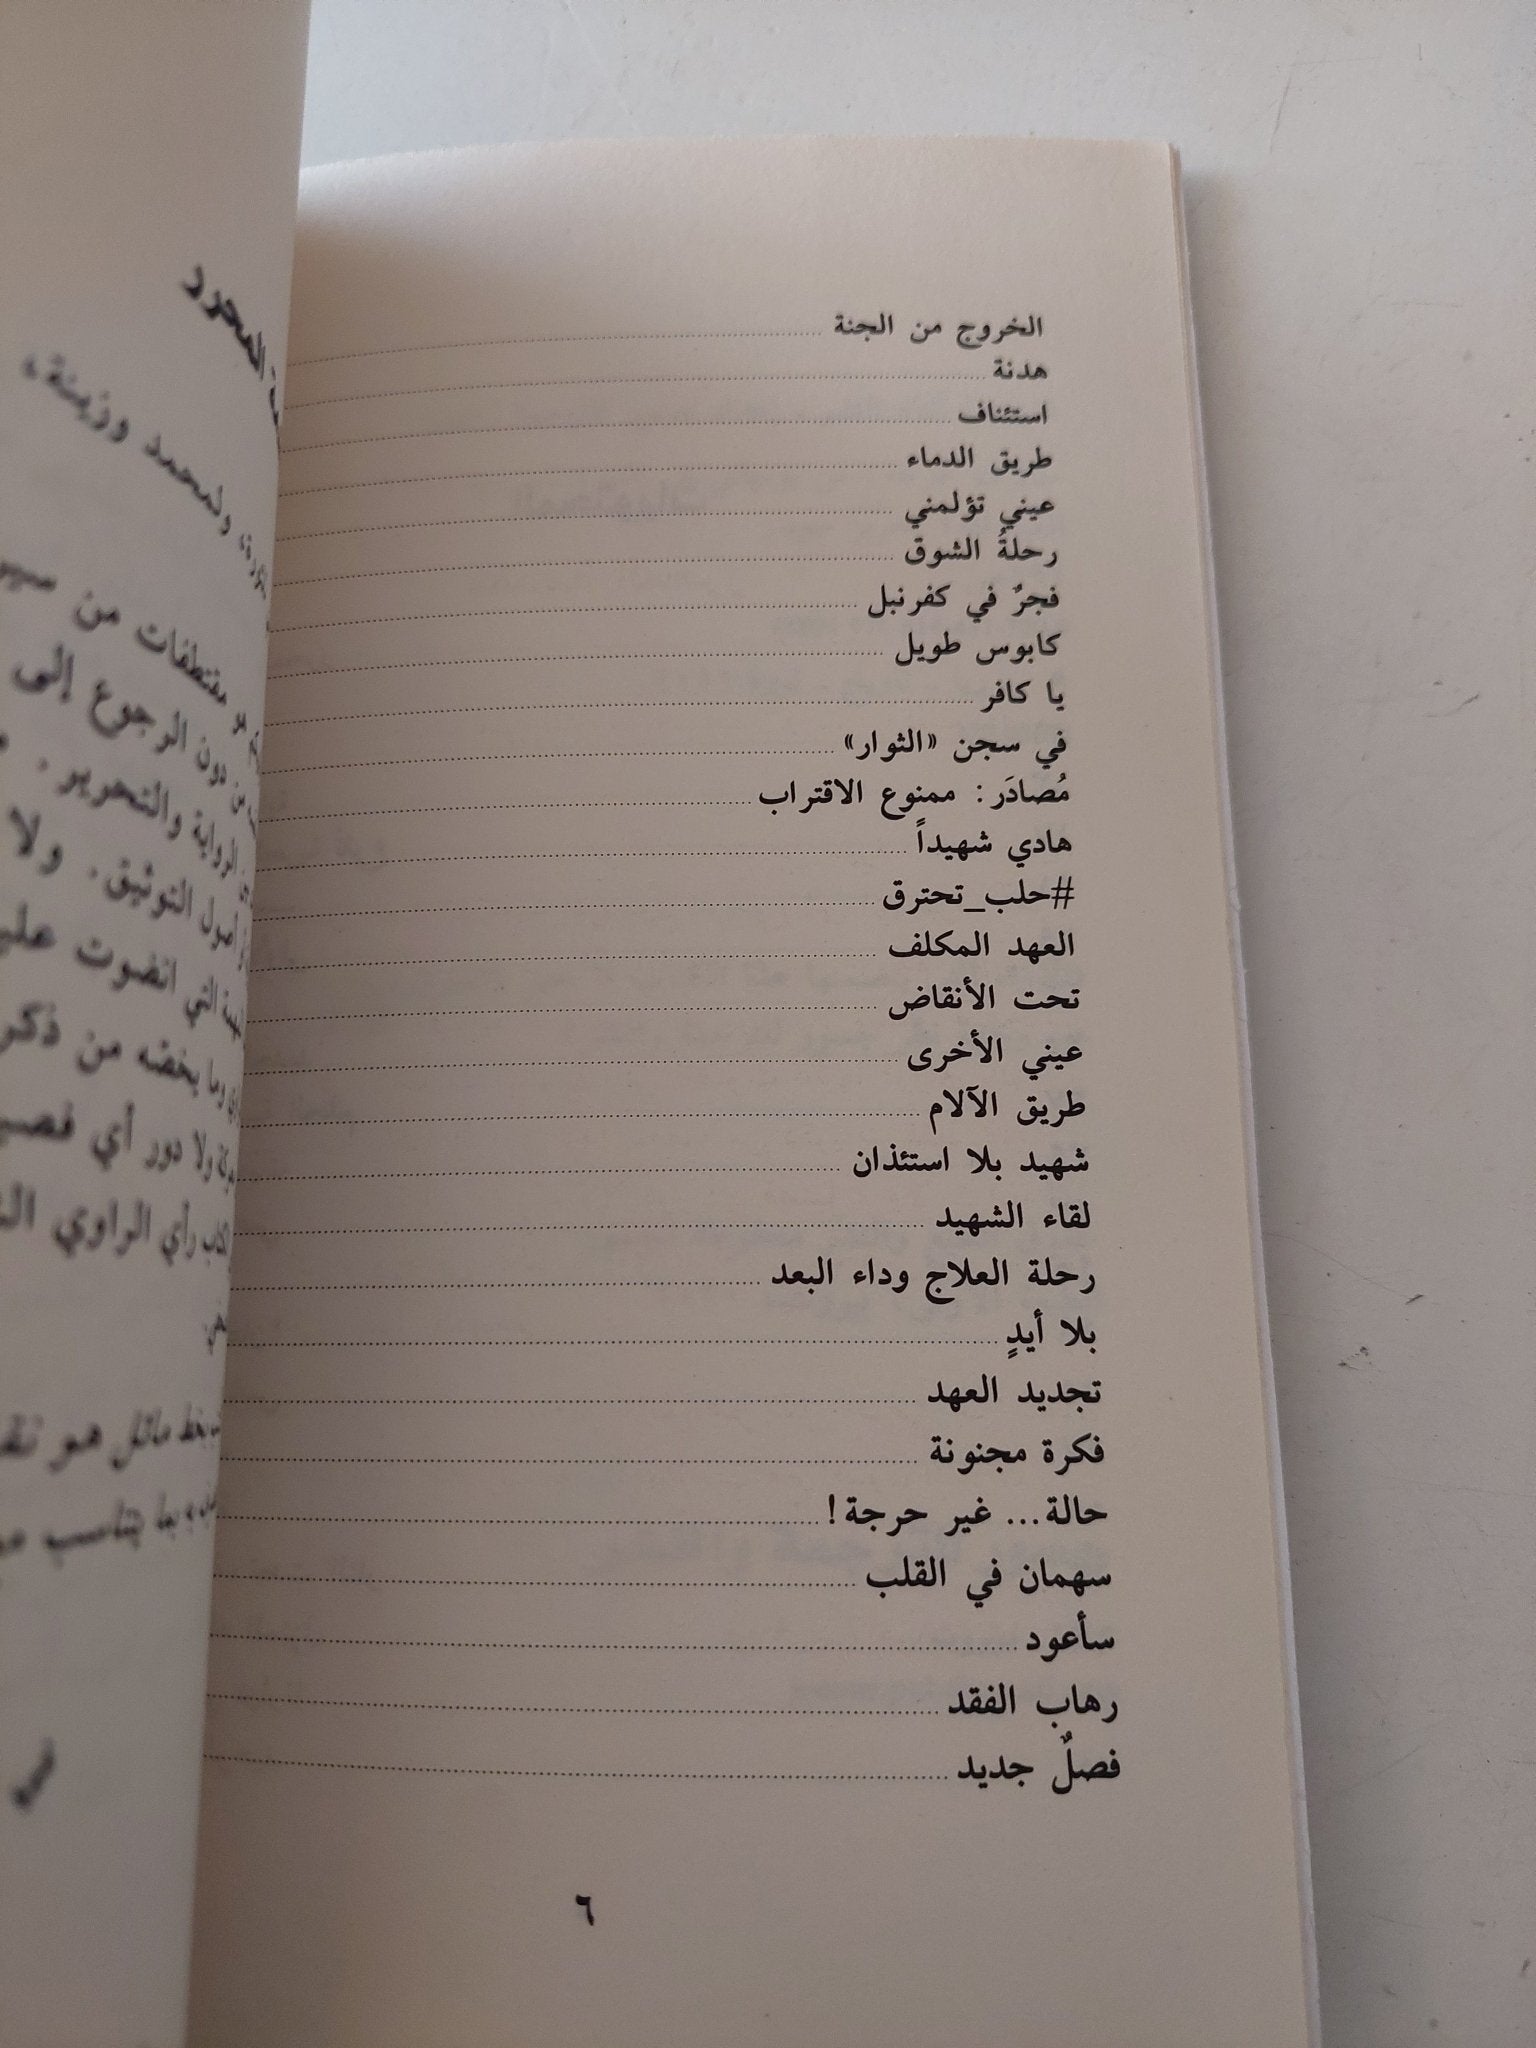 الخروج من الجنة
هدنة
استئناف
طريق الدماء
عيني تؤلمني
رحلةُ الشوق
فجرٌ في كفرنبل
كابوس طويل
يا كافر
في سجن «الثوار»
مُصادَر: ممنوع الاقتراب
هادي شهيداً
#حلب_تحترق
العهد المكلف
تحت الأنقاض
عيني الأخرى
طريق الآلام
شهيد بلا استئذان
لقاء الشهيد
رحلة العلاج وداء البعد
بلا أيدٍ
تجديد العهد
فكرة مجنونة
حالة... غير حرجة!
سهمان في القلب
سأعود
رهاب الفقد
فصلٌ جديد
٦
المحرر
ولمحمد وزينة،
مقتطفات من
دون الرجوع إلى
الرواية والتحرير.
أصول التوثيق. ولا
التي انضوت
وما يخصّه من
ولا دور أي
رأي الراوي
بخط مائل هو
بما يتناسب